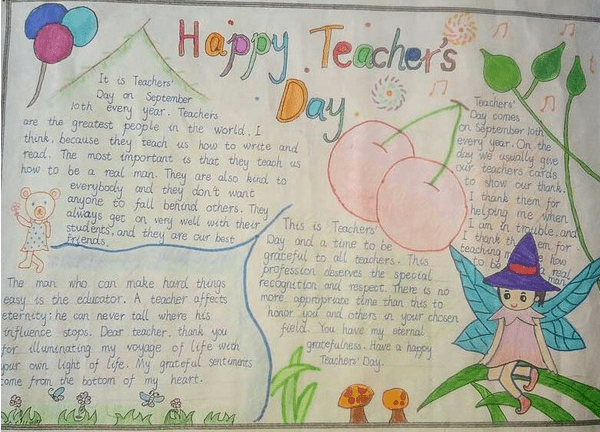 Happy Teacher's
Day
It is Teachers'
Day on September
10th every year. Teachers
are the greatest people in the world, I
think, because they teach us how to write and
read. The most important is that they teach us
how to be a real man. They are also kind to
everybody and they don't want
anyone to fall behind others. They
always get on very well with their
students, and they are our best
friends.
The man who can make hard things
easy is the educator. A teacher affects
eternity; he can never tall where his
influence stops. Dear teacher, thank you
for illuminating my voyage of life with
your own light of life. My grateful sentiments
come from the bottom of my heart.
This is Teachers'
Day and a time to be
grateful to all teachers. This
profession deserves the special
recognition and respect. There is no
more appropriate time than this to
honor you and others in your chosen
field. You have my eternal
gratefulness. Have a happy
Teachers' Day.
Teachers'
Day comes
on September 10th
every year. On the
day we usually give
our teachers cards
to show our thank.
I thank them for
helping me when
I am in trouble, and
I thank them for
teaching me how
to be a real
man